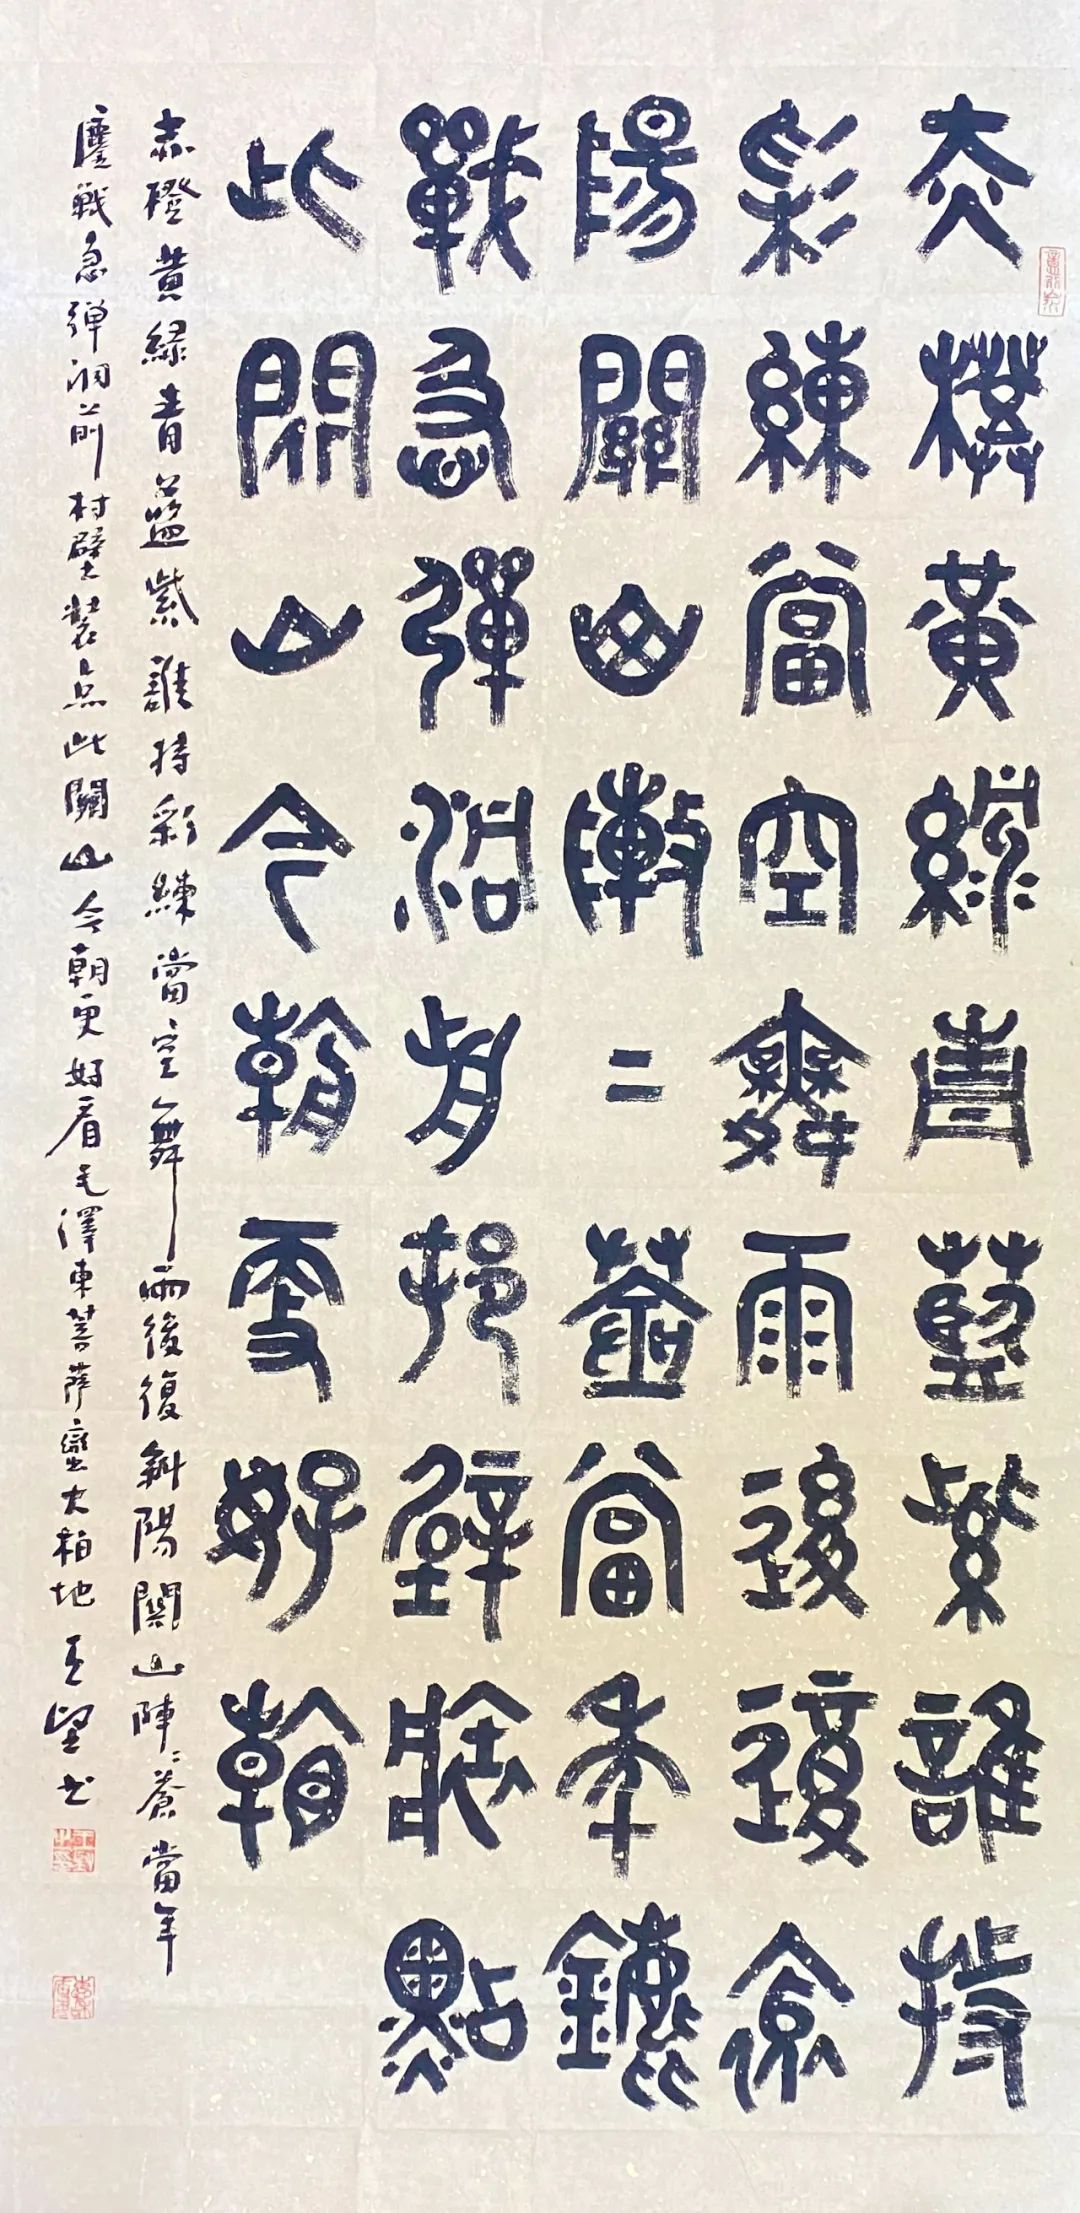 赤橙黃綠青藍紫誰持
彩練當空舞雨後復斜
陽關山陣=蒼當年鏖
戰急彈洞前村壁裝點
此關山今朝更好看
赤橙黃綠青藍紫誰持彩練當空舞雨後復斜陽關山陣=蒼當年
鏖戰急彈洞前村壁裝点此關山今朝更好看毛澤東菩薩蠻大柏地王望书